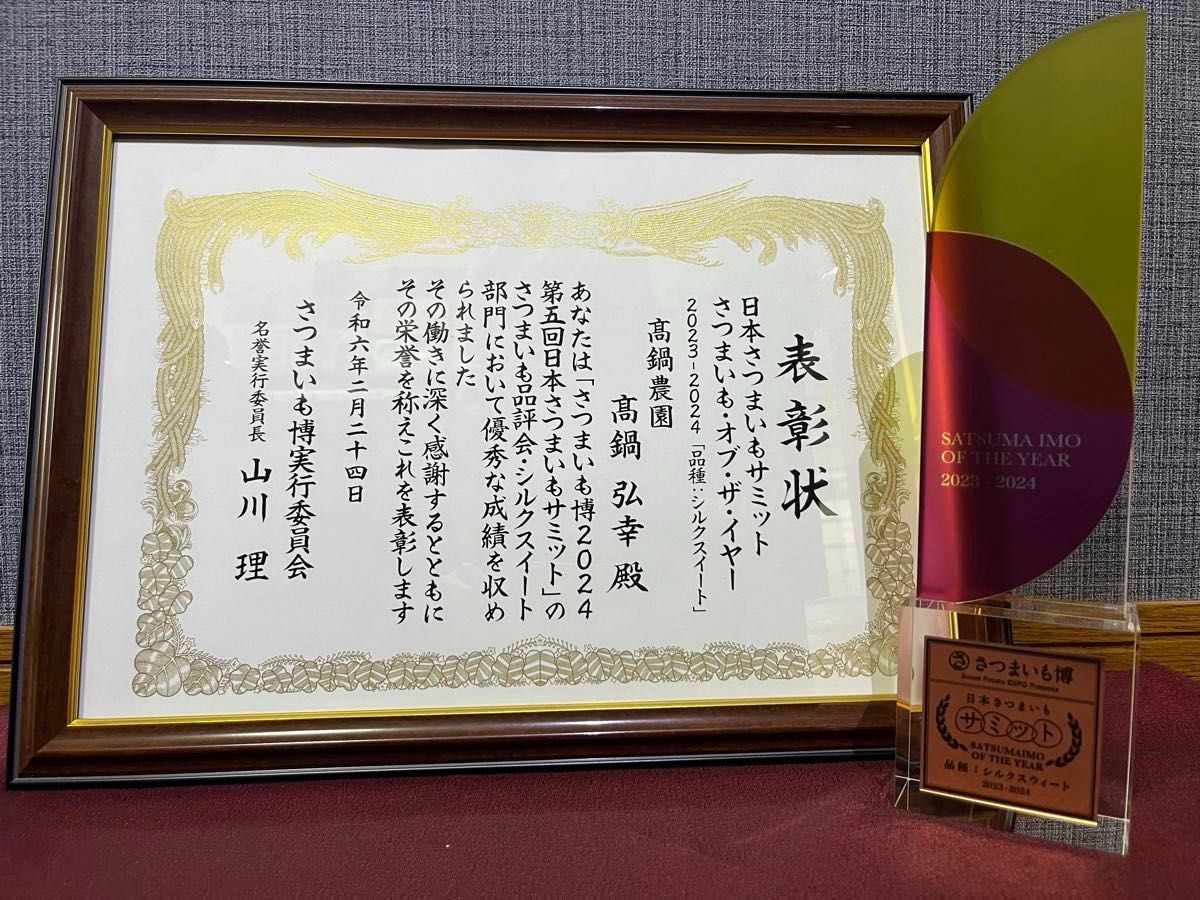 表彰状
日本さつまいもサミット
さつまいも・オブ・ザ・イヤー
2023-2024「品種:シルクスイート」
髙鍋農園
髙鍋 弘幸 殿
あなたは「さつまいも博2024
第五回日本さつまいもサミット」の
さつまいも品評会・シルクスイート
部門において優秀な成績を収め
られました
その働きに深く感謝するとともに
その栄誉を称えこれを表彰します
令和六年二月二十四日
さつまいも博実行委員会
名誉実行委員長 山川 理
SATSUMA IMO
OF THE YEAR
2023 - 2024
さつまいも博
Sweet Potato EXPO Presents
日本さつまいも
サミット
SATSUMAIMO
OF THE YEAR
品種:シルクスウィート
2023-2024